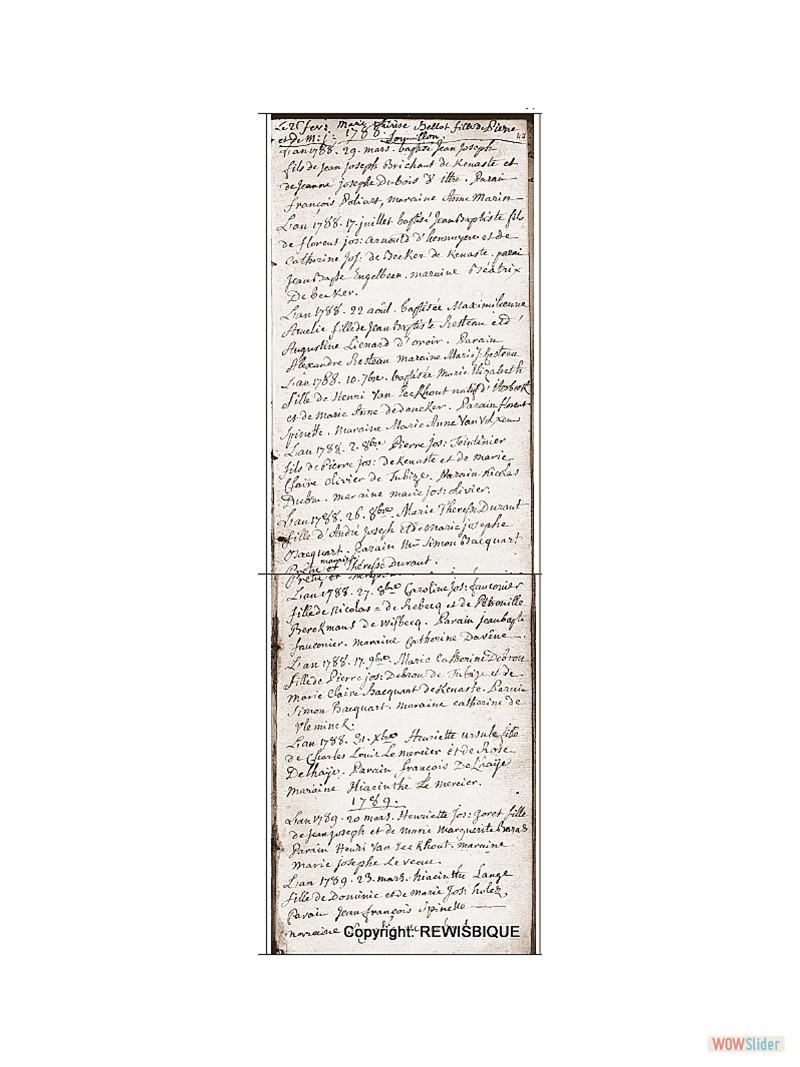 Le 26 fevr. Marie Thérèse Bellot fille de Pierre
et de M: j: 1788. Touvillon. 47
L'an 1788. 29. mars. baptisé Jean Joseph
fils de Jean Joseph Brichant de Kenaste et
de Jeanne josephe Dubois d'ittre. Parain
François Poliart, maraine Anne Marin
L'an 1788. 17. juillet baptisé Jean Baptiste fils
de florent jos: arnould d'hennuyere et de
Catherine Jos. de Becker de Kenaste. parai
Jean Bapte Engelbeen. maraine Béatrix
De becker.
L'an 1788. 22 août. baptisée Maximilienne
Amelie fille de Jean Baptiste Resteau et d'
Augustine Lienard d'ovoir. Parain
Alexandre Resteau maraine Marie J. Resteau
L'an 1788. 10. 7bre. baptisée Marie Elizabeth
fille de Henri Van Eeckhout natif d'
et de Marie Anne dedoncker. Parain florent
Spinette. Maraine Marie Anne Van
L'an 1788. 2. 8bre Pierre Jos: Teintinier
fils de Pierre jos: de Kenaste et de marie
Claire olivier de Tubize. Parain Nicolas
Dubu. maraine marie jos: olivier.
L'an 1788. 26. 8bre. Marie Therese Durant
fille d'André Joseph et de Marie josephe
Bacquart. Parain Mre Simon Bacquart
Prêtre et maraine Therese Durant.
Prêtre et
L'an 1788. 27. 8bre Caroline Jos: fauconier
fille de Nicolas = de Rebecq et de Petronille
Berckmans de Wisbecq. Parain Jean bapte
fauconier. maraine Catherine Davène
L'an 1788. 17. 9bre. Marie Catherine Debrou
fille de Pierre jos: Debrou de Tubize et de
marie Claire Bacquart de Kenaste. Parain
Simon Bacquart. maraine catherine de
Vleminck.
L'an 1788. 31. Xbre Henriette ursule fille
de Charles Louis Le mercier et de Rose
Delhaije. Parain françois Delhaije
maraine Hiacinthe Le Mercier.
1789.
L'an 1789. 20 mars. Henriette Jos: Goret fille
de Jean joseph et de marie marguerite
Parain Henri Van Eeckhout. maraine
Marie josephe Leveau.
L'an 1789. 23. mars. hiacinthe Lange
fille de Dominic et de Marie Jos: holez
Parain Jean françois Spinette
maraine
Copyright: REWISBIQUE
WOWSlider